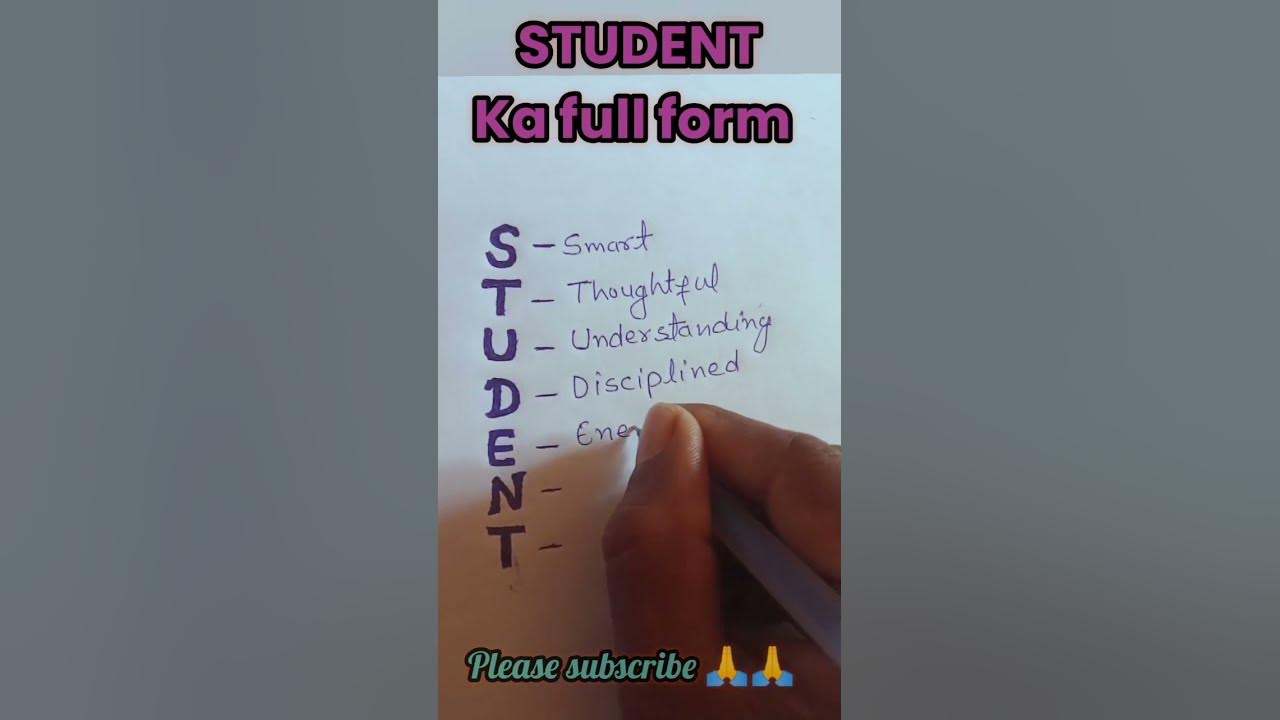 STUDENT
Ka full form
S - Smart
T - Thoughtful
U - Understanding
D - Disciplined
E - Ene
N -
T -
Please subscribe 🙏🙏